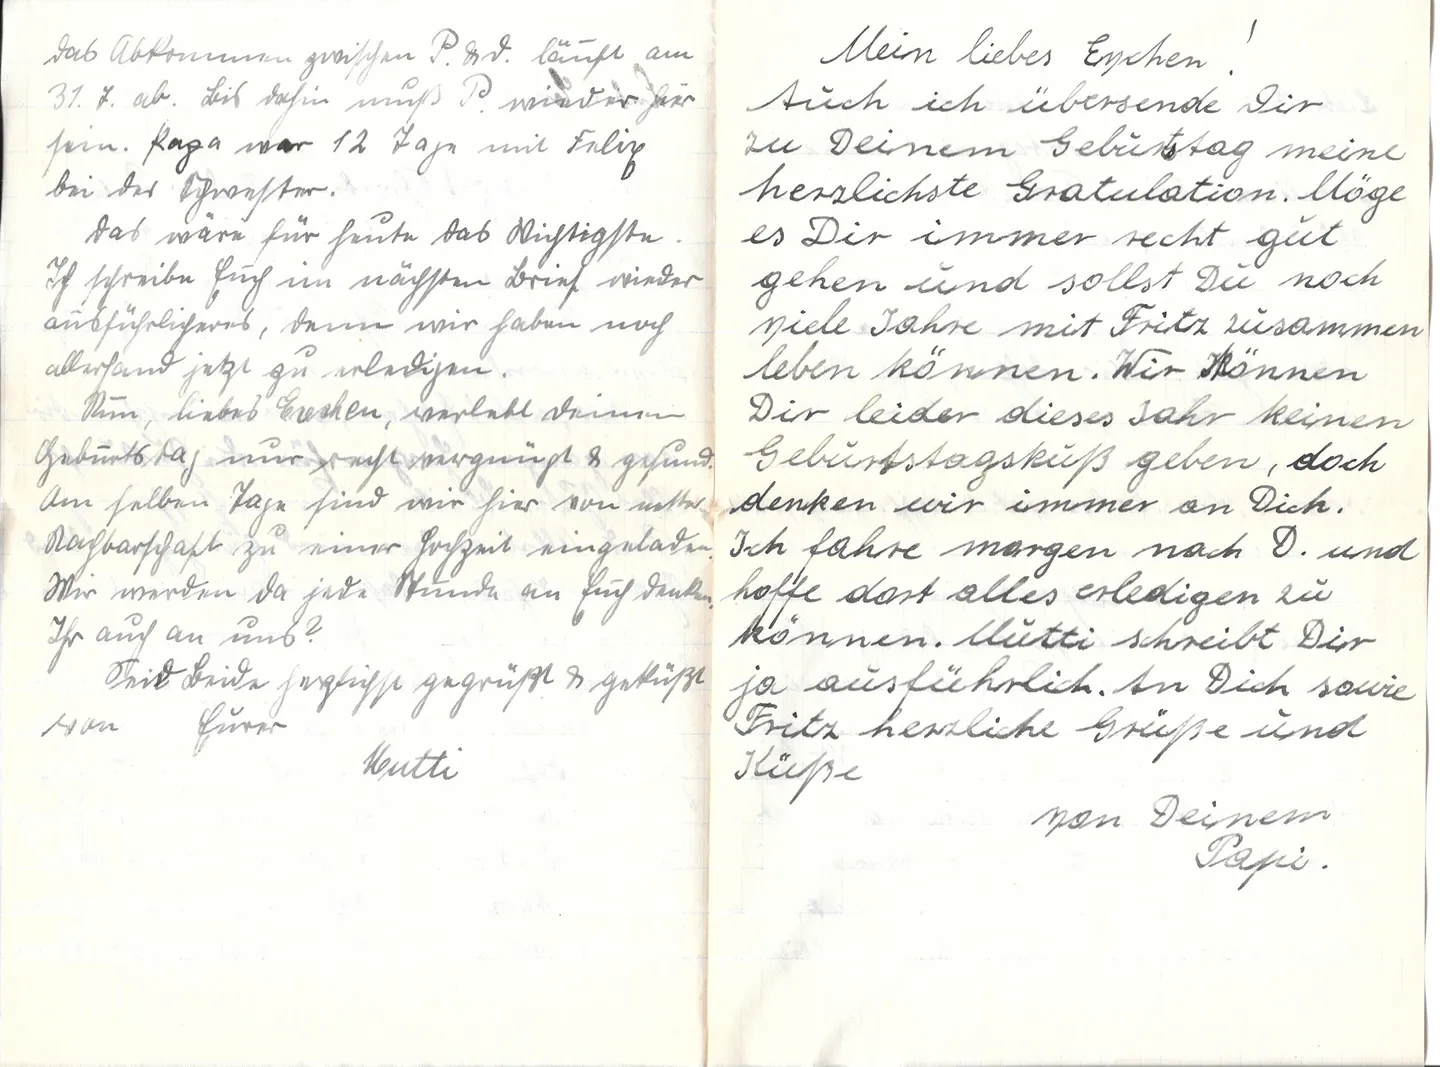 das Abkommen zwischen P. & D. läuft am
31. 7. ab. Bis dahin muß P. wieder hier
sein. Papa war 12 Tage mit Felix
bei der Schwester.
Das wäre für heute das Wichtigste.
Ich schreibe Euch im nächsten Brief wieder
ausführlicheres, denn wir haben noch
allerhand jetzt zu erledigen.
Nun, liebes Evchen, verlebt Deinen
Geburtstag nur recht vergnügt & gesund.
Am selben Tage sind wir hier von netter
Nachbarschaft zu einer Hochzeit eingeladen.
Wir werden da jede Stunde an Euch denken.
Ihr auch an uns?
Seid Beide herzlichst gegrüßt & geküßt
von Eurer
Mutti
Mein liebes Evchen!
Auch ich übersende Dir
zu Deinem Geburtstag meine
herzlichste Gratulation. Möge
es Dir immer recht gut
gehen und sollst Du noch
viele Jahre mit Fritz zusammen
leben können. Wir können
Dir leider dieses Jahr keinen
Geburtstagskuß geben, doch
denken wir immer an Dich.
Ich fahre morgen nach D. und
hoffe dort alles erledigen zu
können. Mutti schreibt Dir
ja ausführlich. An Dich sowie
Fritz herzliche Grüße und
Küße
von Deinem
Papi.